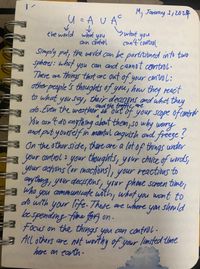 M, January 1, 2024
U = A ∪ Aᶜ
the world what you can control what you can't control
Simply put, the world can be partitioned into two
spheres: what you can and cannot control.
There are things that are out of your control:
other people's thoughts of you, how they react
to what you say, their decisions and what they
do. Even the weather are out of your scope of control.
You can't do anything about them, so why worry
and put yourself in mental anguish and freeze?
On the other side, there are a lot of things under
your control: your thoughts, your choice of words,
your actions (or inactions), your reactions to
anything, your decisions, your phone screen time,
who you communicate with, what you want to
do with your life. These are where you should
be spending time on.
Focus on the things you can control.
All others are not worthy of your limited time
here on earth.